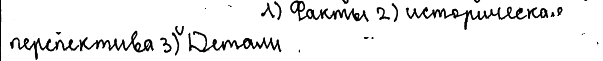 1) Факты 2) историческая
перспектива 3) Детали.